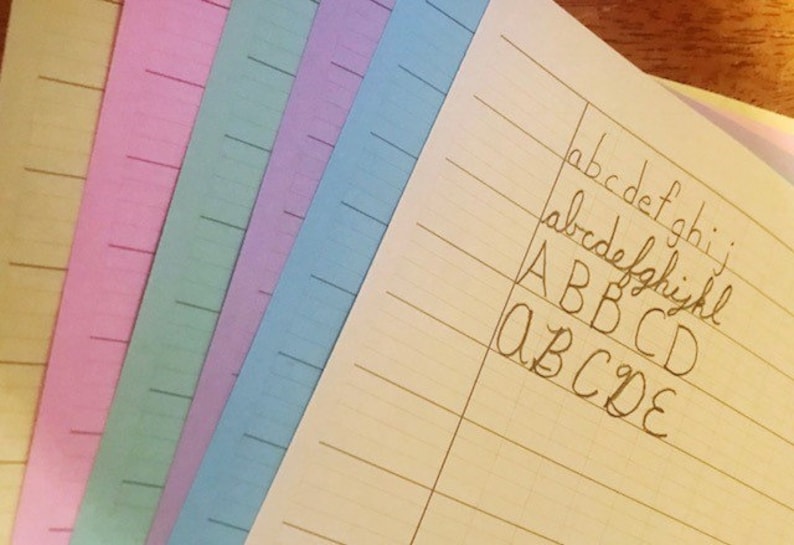 abcdefghij
abcdefghijkl
ABBCD
ABCDE